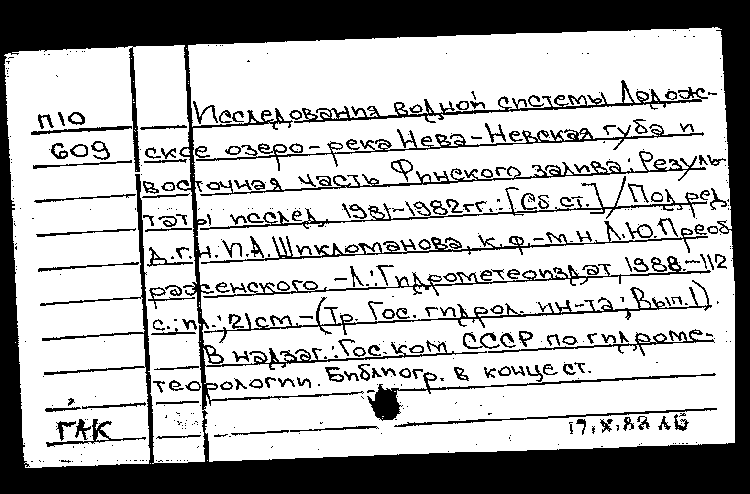 П10 Исследования водной системы Ладож-
609 ское озеро-река Нева-Невская губа и
восточная часть Финского залива: Резуль-
таты исслед. 1981-1982гг.:[Сб.ст.]/Под ред.
д.г.н. И.А.Шикломанова, к.ф.-м.н. Л.Ю.Преоб-
раженского.-Л.:Гидрометеоиздат, 1988.-112
с.: ил.; 21см.-(Тр. Гос. гидрол. ин-та; Вып.1).
В надзаг.: Гос. ком. СССР по гидроме-
теорологии. Библиогр. в конце ст.
ГАК